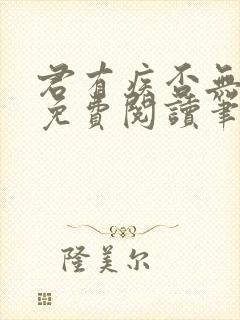 君有疾否無
免費閱讀筆
隆美尔